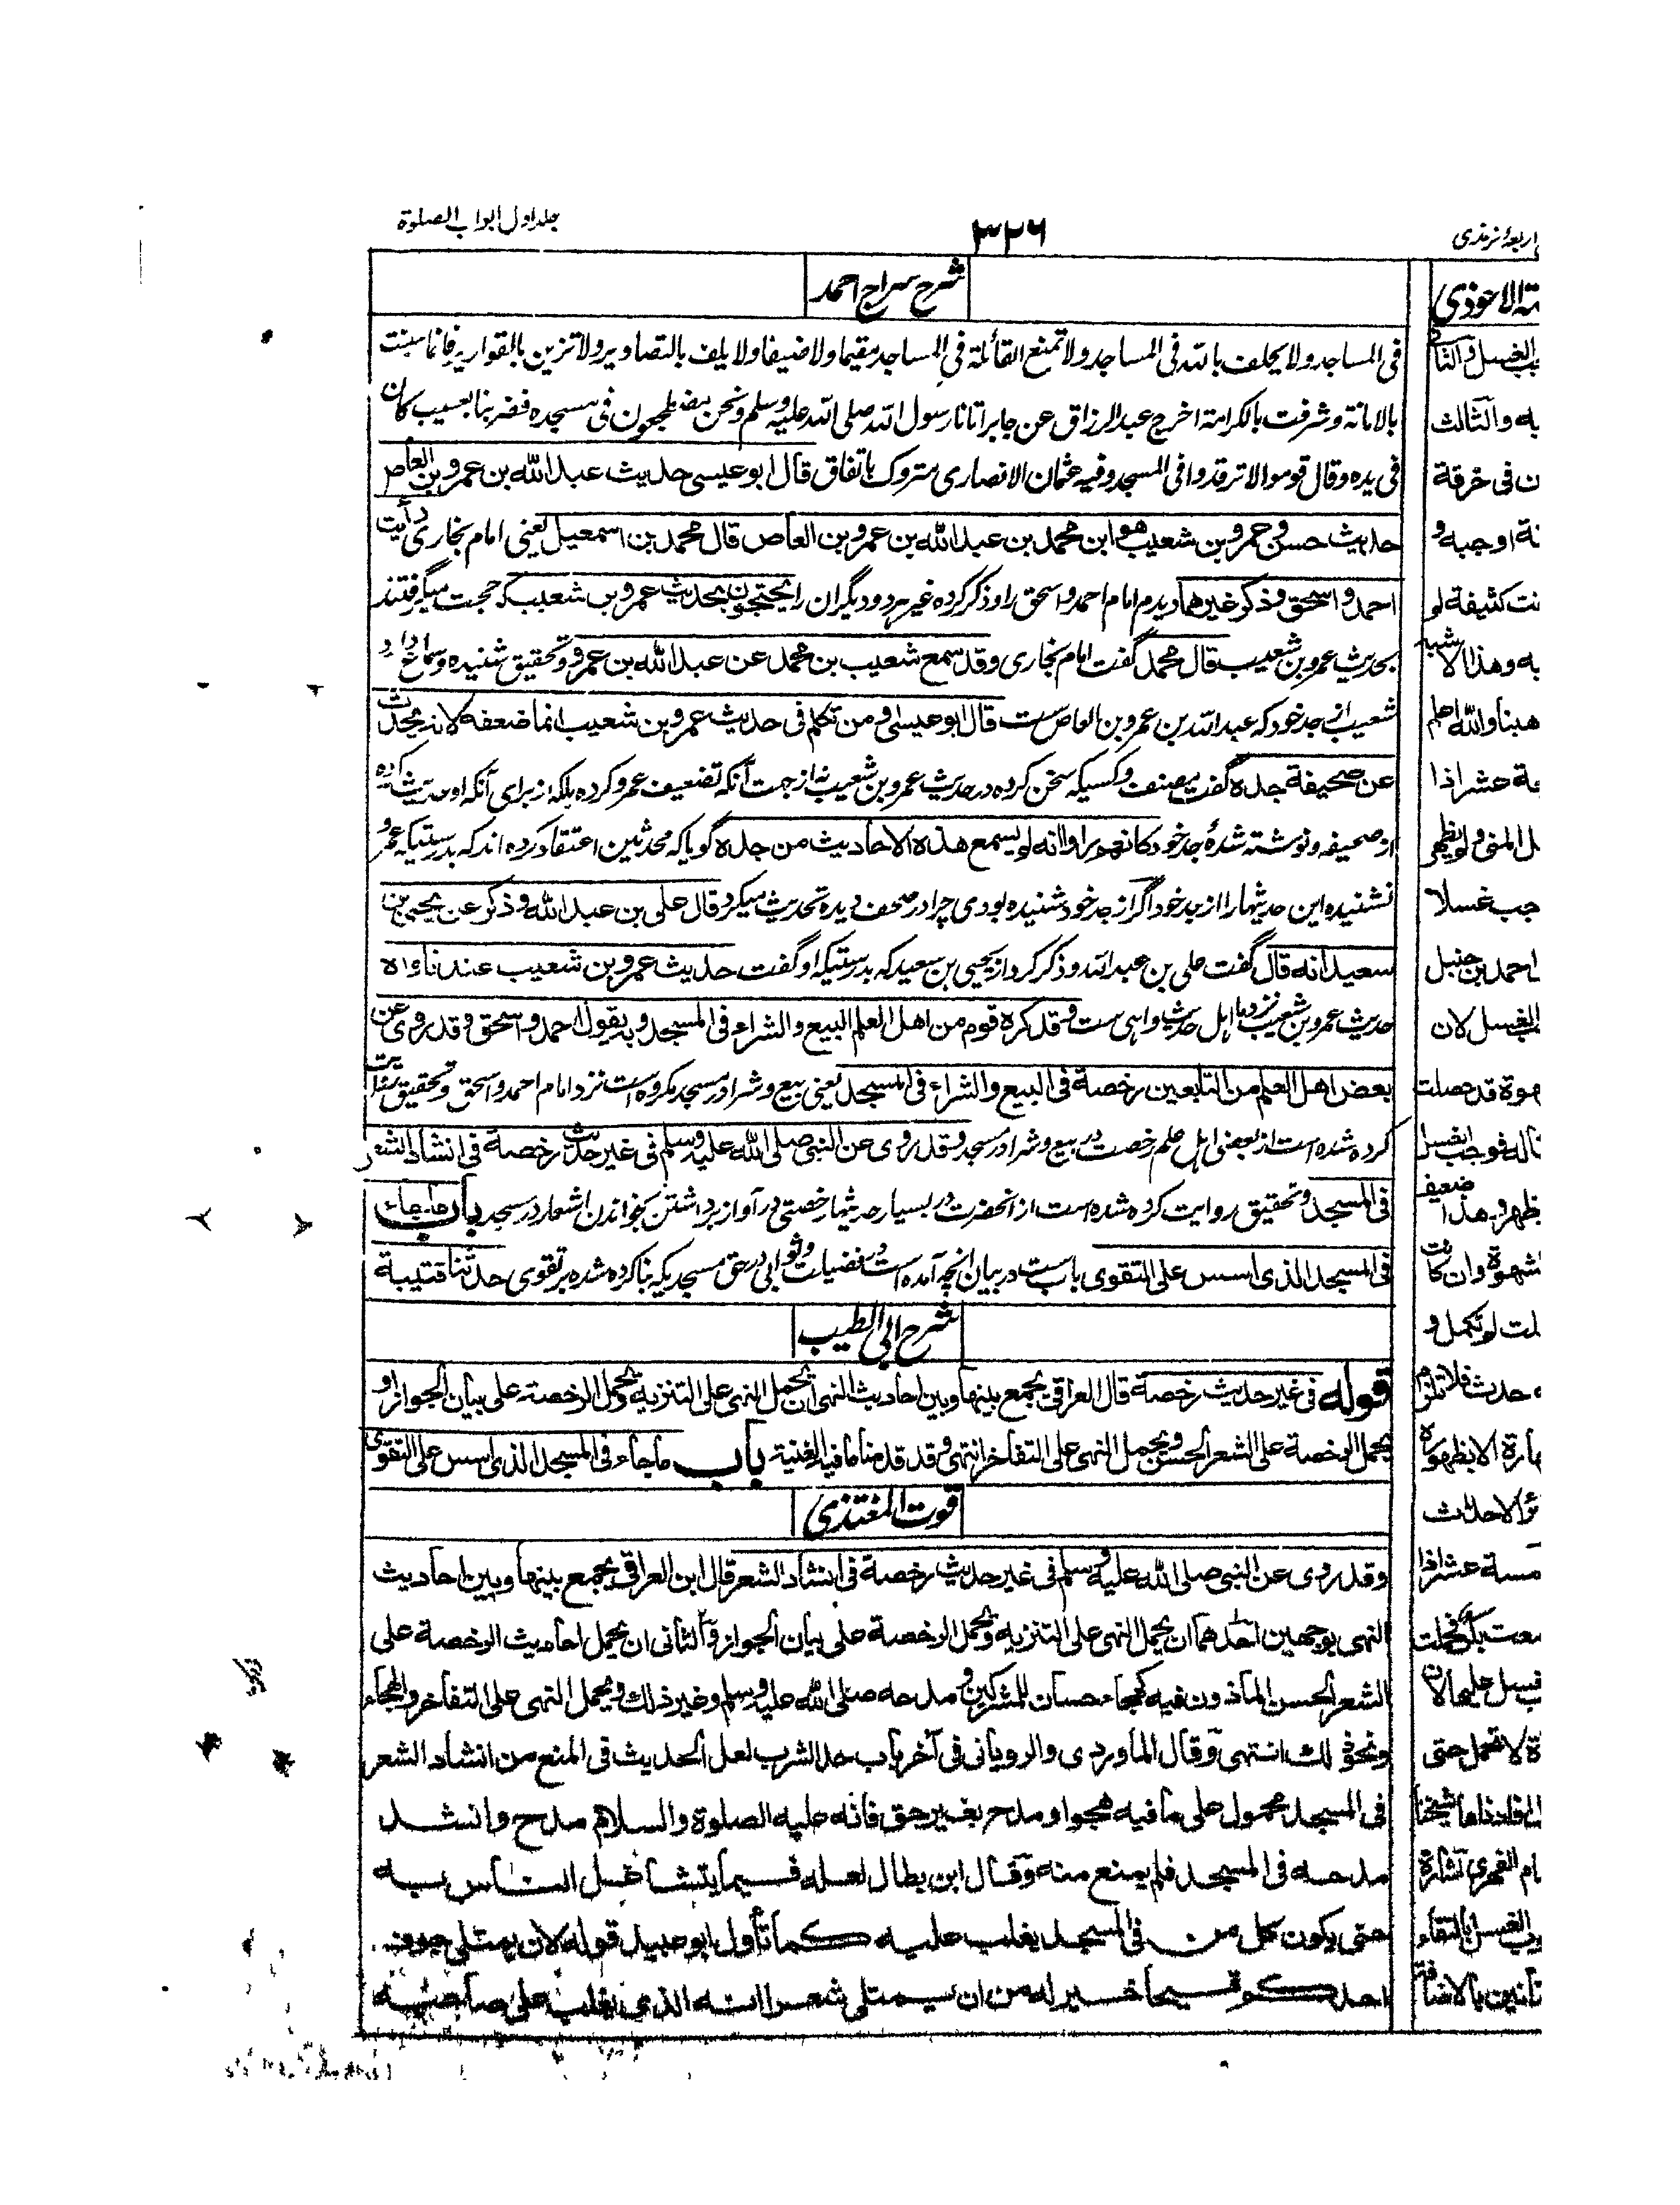 اربعۀ ترمذی
۳۲۶
جلد اول ابواب الصلوة
شرح سراج احمد
فی المساجد ولا یحلف بالله فی المساجد ولا تمنع القائلة فی المساجد مقیما ولا ضیفا ولا یلف بالتصاویر ولا تزین بالقواریر فانما بنیت
بالامانة وشرفت بالکرامة اخرج عبد الرزاق عن جابر اتانا رسول الله صلی الله علیه وسلم ونحن مضطجعون فی مسجده فضربنا بعسیب کان
فی یده وقال قوموا لا ترقدوا فی المسجد وفیه عثمان الانصاری متروک باتفاق قال ابو عیسی حدیث عبد الله بن عمرو بن العاص
حدیث حسن وعمرو بن شعیب هو ابن محمد بن عبد الله بن عمرو بن العاص قال محمد بن اسمعیل یعنی امام بخاری رأیت
احمد واسحق وذکر غیرهما دیدم امام احمد واسحق را وذکر کرده غیر هردو دیگران را یحتجون بحدیث عمرو بن شعیب که حجت میگرفتند
بحدیث عمرو بن شعیب قال محمد گفت امام بخاری وقد سمع شعیب بن محمد عن عبد الله بن عمرو وتحقیق شنیده وسماع دارد
شعیب از جد خود که عبد الله بن عمرو بن العاص ست قال ابو عیسی ومن تکلم فی حدیث عمرو بن شعیب انما ضعفه لانه یحدث
عن صحیفة جده گفت مصنف وکسیکه سخن کرده در حدیث عمرو بن شعیب نه از جهت آنکه تضعیف عمرو کرده بلکه از برای آنکه او حدیث کرده
از صحیفه ونوشته شدۀ جد خود کانهم راوا انه لم یسمع هذه الاحادیث من جده گویا که محدثین اعتقاد کرده اند که بدرستیکه عمرو
نشنیده این حدیثها را از جد خود اگر از جد خود شنیده بودی چرا در صحف دیده تحدیث میکرد قال علی بن عبد الله وذکر عن یحیی بن
سعید انه قال گفت علی بن عبد الله وذکر کرد از یحیی بن سعید که بدرستیکه او گفت حدیث عمرو بن شعیب عندنا واه
حدیث عمرو بن شعیب نزد ما اهل حدیث واهی ست وقد کره قوم من اهل العلم البیع والشراء فی المسجد وبه یقول احمد واسحق وقد روی عن
بعض اهل العلم من التابعین رخصة فی البیع والشراء فی المسجد یعنی بیع وشرا در مسجد مکروه است نزد امام احمد واسحق وتحقیق روایت
کرده شده است از بعضی اهل علم رخصت در بیع وشرا در مسجد وقد روی عن النبی صلی الله علیه وسلم فی غیر حدیث رخصة فی انشاد الشعر
فی المسجد وتحقیق روایت کرده شده است از آنحضرت در بسیار حدیثها رخصتی در آواز برداشتن بخواندن اشعار در مسجد باب ما جاء
فی المسجد الذی اسس علی التقوی باب ست در بیان انچه آمده است در فضیلت وثوابی در حق مسجدیکه بنا کرده شده بر تقوی حدثنا قتیبة
شرح ابی الطیب
قوله فی غیر حدیث رخصة قال العراقی یجمع بینها وبین احادیث النهی ان یحمل النهی علی التنزیه ویحمل الرخصة علی بیان الجواز او
یحمل الرخصة علی الشعر الحسن ویحمل النهی علی التفاخر انتهی وقد قدمنا ما فیه الغنیة باب ما جاء فی المسجد الذی اسس علی التقوی
قوت المغتذی
وقد روی عن النبی صلی الله علیه وسلم فی غیر حدیث رخصة فی انشاد الشعر قال ابن العراقی یجمع بینها وبین احادیث
النهی بوجهین احدهما ان یحمل النهی علی التنزیه وتحمل الرخصة علی بیان الجواز والثانی ان یحمل احادیث الرخصة علی
الشعر الحسن الماذون فیه کهجاء حسان للمشرکین ومدحه صلی الله علیه وسلم وغیر ذلك ویحمل النهی علی التفاخر والهجاء
ونحو ذلك انتهی وقال الماوردی والرویانی فی آخر باب حد الشرب لعل الحدیث فی المنع من انشاد الشعر
فی المسجد محمول علی ما فیه هجو او مدح بغیر حق فانه علیه الصلوة والسلام مدح وانشد
مدحه فی المسجد فلم یمنع منه وقال ابن بطال لعله فیما یتشاغل الناس به
حتی یکون کل من فی المسجد یغلب علیه کما تأول ابو عبید قوله لان یمتلی جوف
احدکم قیحا خیر له من ان یمتلی شعرا انه الذی یغلب علی صاحبه
ـة الاحوذی
به والثالث
ن فی خرقة
نة اوجبه و
نت کثیفة لو
به وهذا الاشبه
هبنا والله اعلم
ـة عشر اذا
ل المنی ولم یظهر
جب غسلا
احمد بن حنبل
الغسل لان
هوة قد حصلت
ـاله فوجب الغسل
یظهر وهذا ضعیف
شهوة وان کانت
لت لم تکمل و
حدث فلا تلزم
ـة عشر اذا
ـة لا تحمل حتی